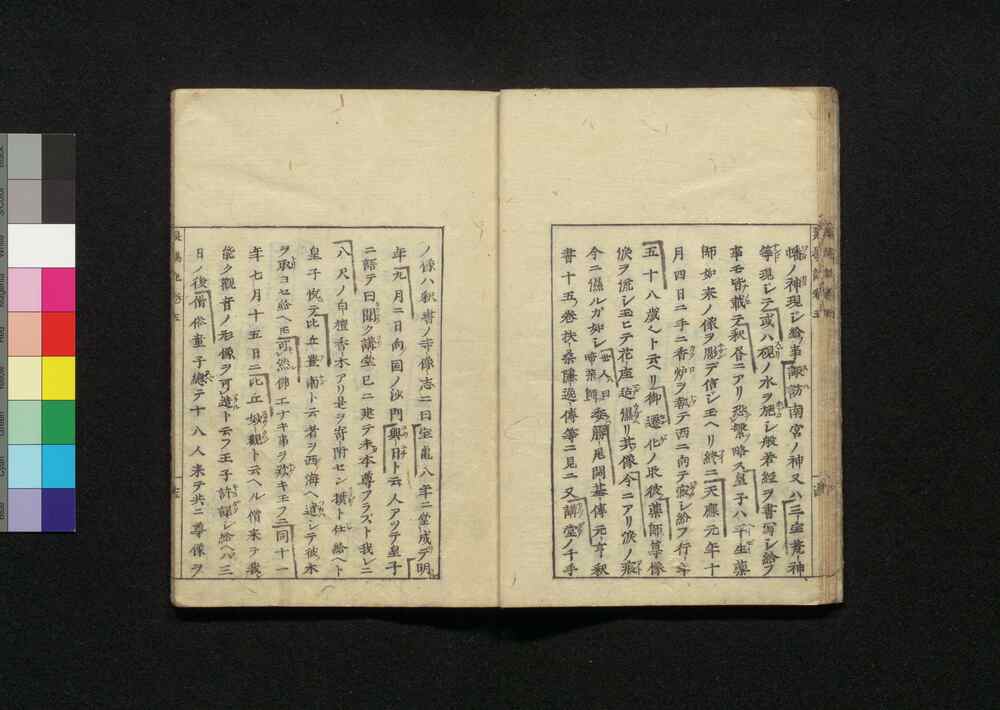 幡ノ神現シ給事諏訪南宮ノ神又ハ三宝荒神
等現シテ或ハ硯ノ水ヲ施シ般若経ヲ書写シ給フ
事モ皆載テ釈書ニアリ繁ヲ略ス皇子ハ平生薬
師如来ノ像ヲ彫テ信シ玉ヘリ終ニ天應元年十
月四日ニ手ニ香炉ヲ執テ西ニ向テ寂シ給フ行年
五十八歳ト云ヘリ御遷化ノ取彼薬師尊像
涙ヲ流シ玉ヒテ花座 其像今ニアリ涙ノ痕
今ニ儼ルガ如シ世人日啼薬師 委 開基傳元亨釈
書十五巻扶桑隠逸傳等ニ見ニ又講堂ノ千手
ノ像ハ釈書ノ寺像志ニ曰宝亀八年ニ堂成テ明
年九月二日向国ノ沙門興日ト云人アツテ皇子
ニ語テ曰聞ク講堂已ニ建テ未本尊アラスト我レニ
八尺ノ白檀香木アリ是ヲ寄附セン撰ト仕給ヘト
皇子悦テ比丘豊南ト云者ヲ西海ヘ遣シテ彼木
ヲ取ヨセ給ヘ圧可然佛工ナキ事ヲ歎キ玉フ三同十一
年七月十五日ニ比丘妙観ト云ヘル僧来テ我
能ク観音ノ形像ヲ可シ造ト云フ王子許諾シ給ヘバ三
日ノ後僧俗童子總テ十八人来テ共ニ尊像ヲ